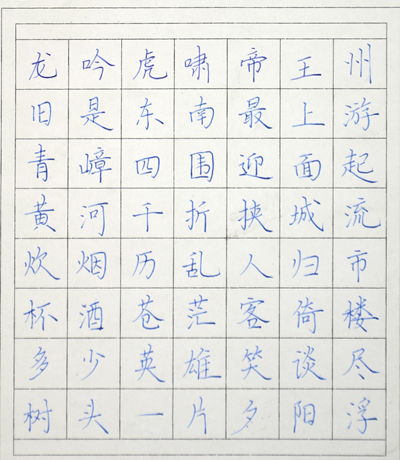 龙吟虎啸帝王州
旧是东南最上游
青嶂四围迎面起
黄河千折挟城流
炊烟历乱人归市
杯酒苍茫客倚楼
多少英雄笑谈尽
树头一片夕阳浮